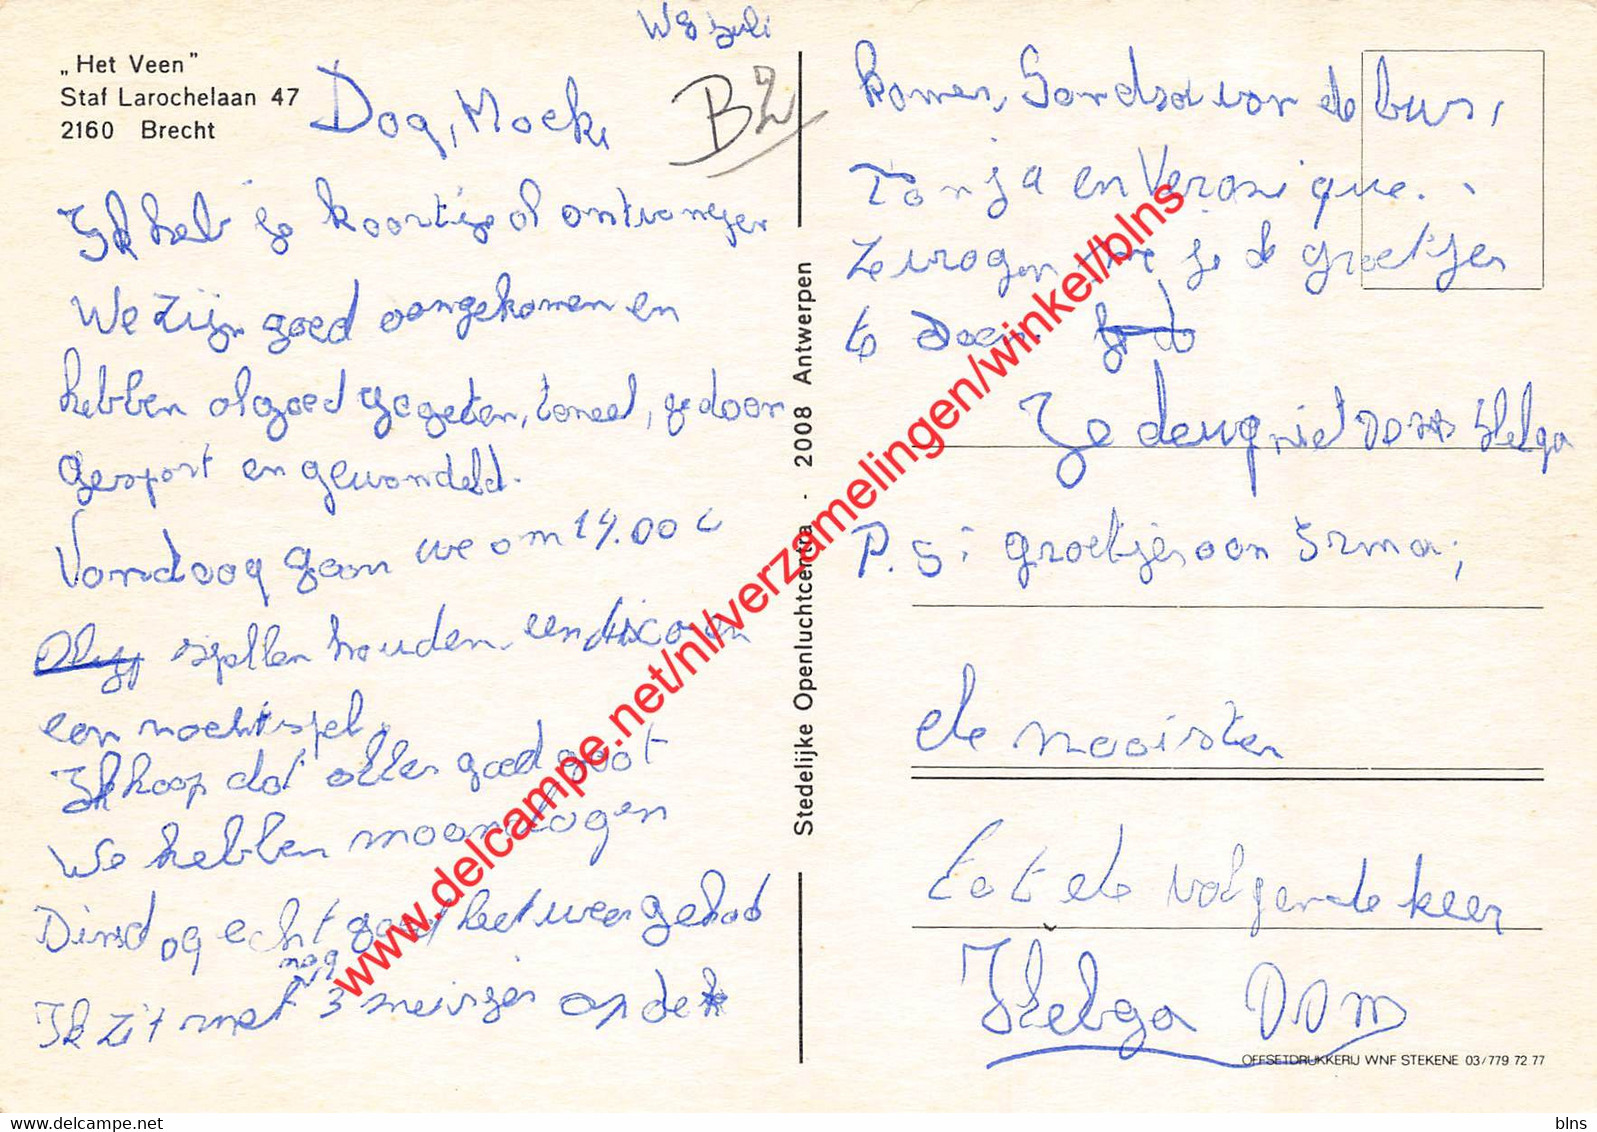 W8 juli
„Het Veen”
Staf Larochelaan 47
2160 Brecht
Dag, Moeke
B2
Ik heb je kaartje al ontvangen
We zijn goed aangekomen en
hebben al goed gegeten, toneel, gedaan
gesport en gewandeld.
Vandaag gaan we om 14.00 u
spellen houden. een disco en
een nachtspel,
Ik hoop dat alles goed gaat
We hebben maandagen
Dinsdag echt goed het weer gehad
nog
Ik zit met 3 meisjes op de
Stedelijke Openluchtcentra - 2008 Antwerpen
kamer, Sandra van de bus,
Tanja en Veronique.
Ze vragen je de groetjes
te doen
Je deugniet Helga
P.S: groetjes aan Irma;
de mooiste
Tot de volgende keer
Helga
OFFSETDRUKKERIJ WNF STEKENE 03/779 72 77
www.delcampe.net/nl/verzamelingen/winkel/blns
delcampe.net
blns